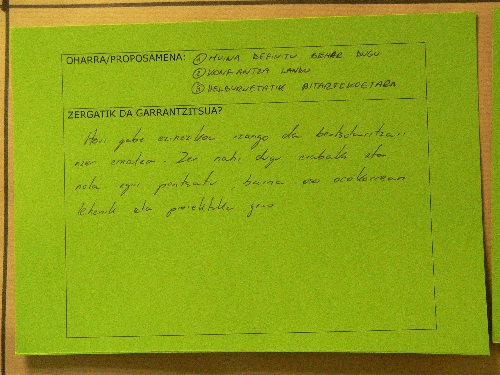 OHARRA/PROPOSAMENA: ① MUINA DEFINITU BEHAR DUGU
② KONFIANTZA LANDU
③ HELBURUETATIK BITARTEKOETARA
ZERGATIK DA GARRANTZITSUA?
Hori gabe ezinezkoa izango da bertsolaritzari
izen ematea. Zer nahi dugu zabaldu eta
nola egin pentsatu, baina oso orokorrean
lehenik eta proiektuka gero